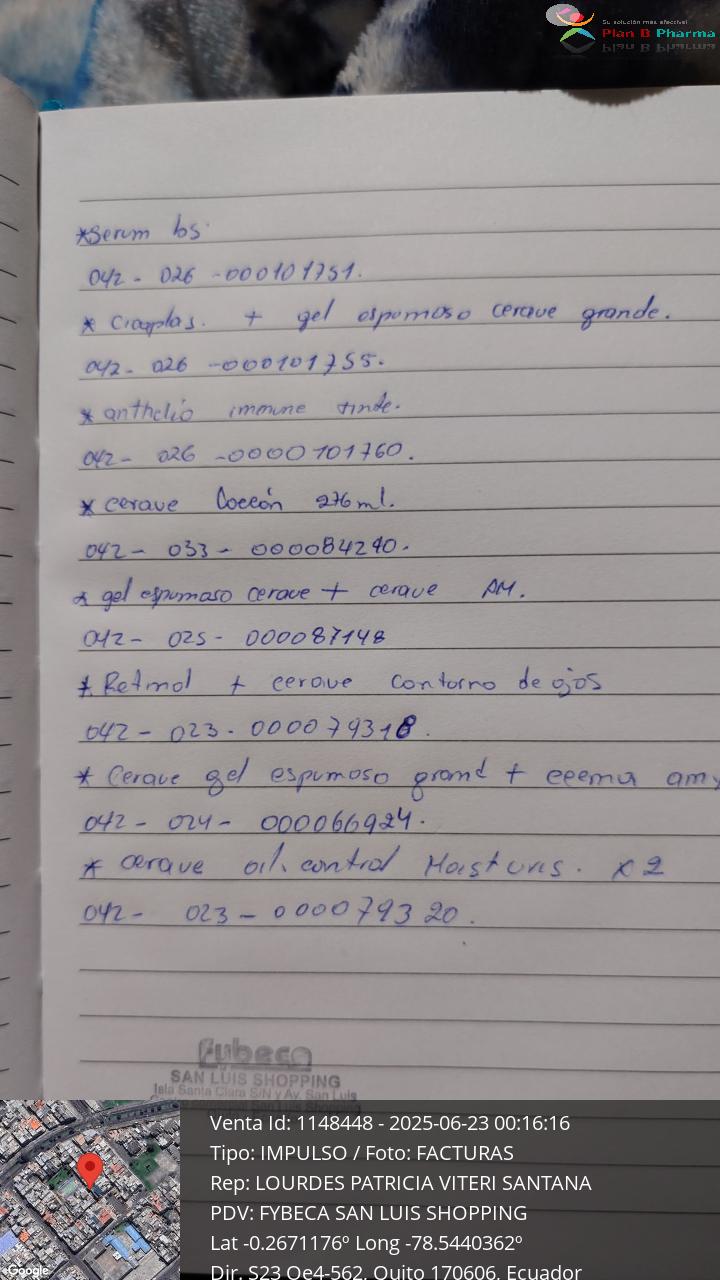 Su solución más efectiva!
Plan B Pharma
*Serum bs.
042 - 026 -000101751.
* Cicaplas. + gel espumoso cerave grande.
042- 026 -000101755.
* anthelio immune tinde.
042- 026 -0000101760.
* cerave Loccón 276ml.
042- 033- 000084240.
* gel espumaso cerave + cerave AM.
042- 025- 000087148
* Retinol + cerave contorno de ojos
042- 023- 000079318.
* Cerave gel espumoso grand +
042- 024- 000066924.
* cerave oil. control Moisturis. x2
042- 023-000079320.
fybeca
SAN LUIS SHOPPING
Isla Santa Clara S/N y Av. San Luis
Venta Id: 1148448 - 2025-06-23 00:16:16
Tipo: IMPULSO / Foto: FACTURAS
Rep: LOURDES PATRICIA VITERI SANTANA
PDV: FYBECA SAN LUIS SHOPPING
Lat -0.2671176º Long -78.5440362º
Dir. S23 Oe4-562, Quito 170606, Ecuador
Google